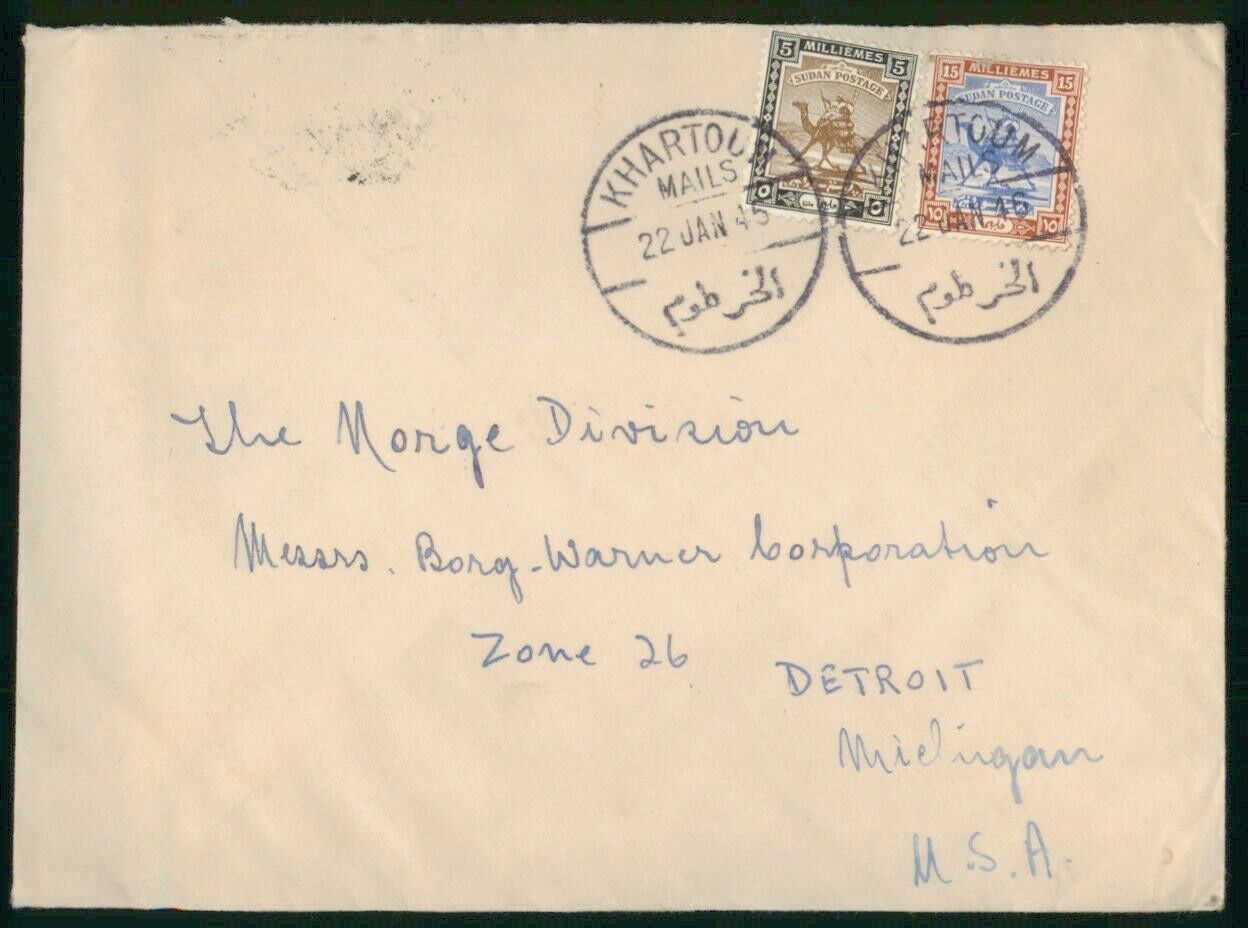 5 MILLIEMES 5
SUDAN POSTAGE
٥ ٥
15 MILLIEMES 15
SUDAN POSTAGE
١٥ ١٥
KHARTOUM
MAILS
22 JAN 46
الخرطوم
TOUM
MAILS
22 JAN 46
الخرطوم
The Norge Division
Messrs. Borg-Warner Corporation
Zone 26
DETROIT
Michigan
U.S.A.